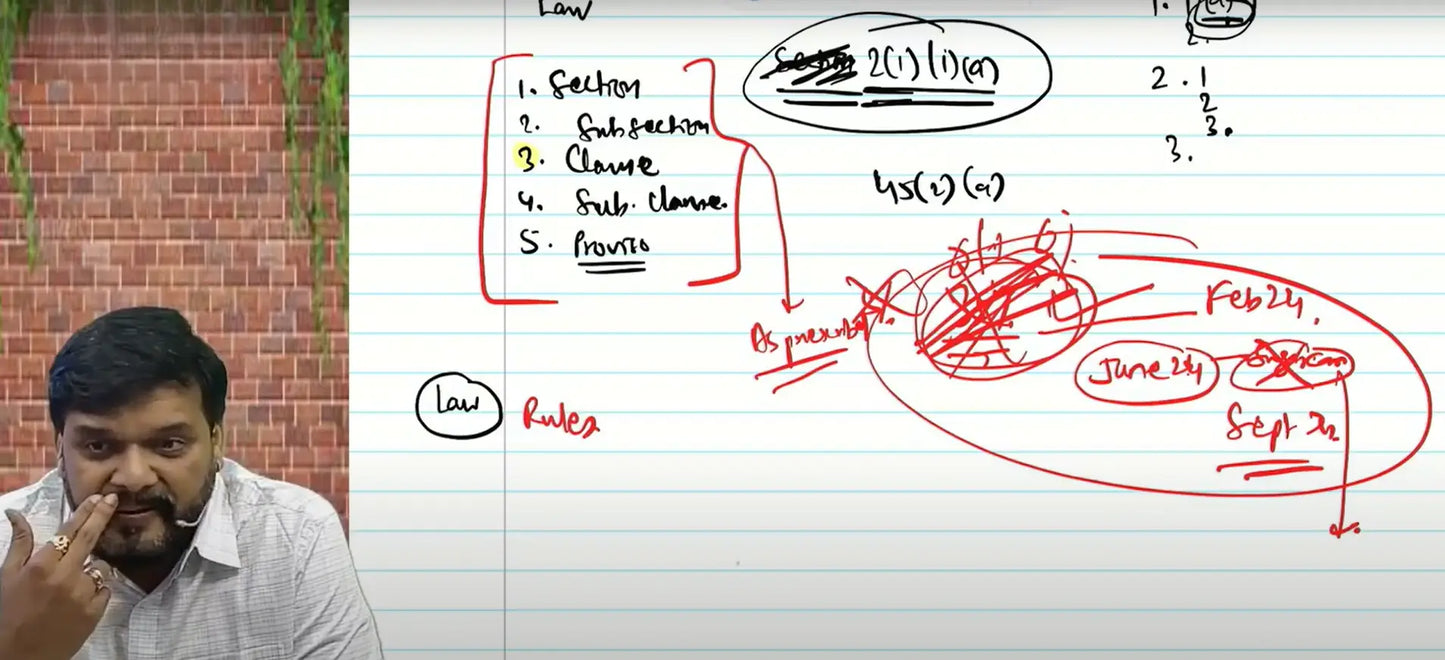 Law
1. Section
2. Subsection
3. Clause
4. Sub. Clause.
5. Proviso
2(1)(i)(a)
1. (a)
2.
2. 1
2
3.
3.
45(2)(a)
As prescribed
Feb 24.
June 24
Sept
Law
Rules